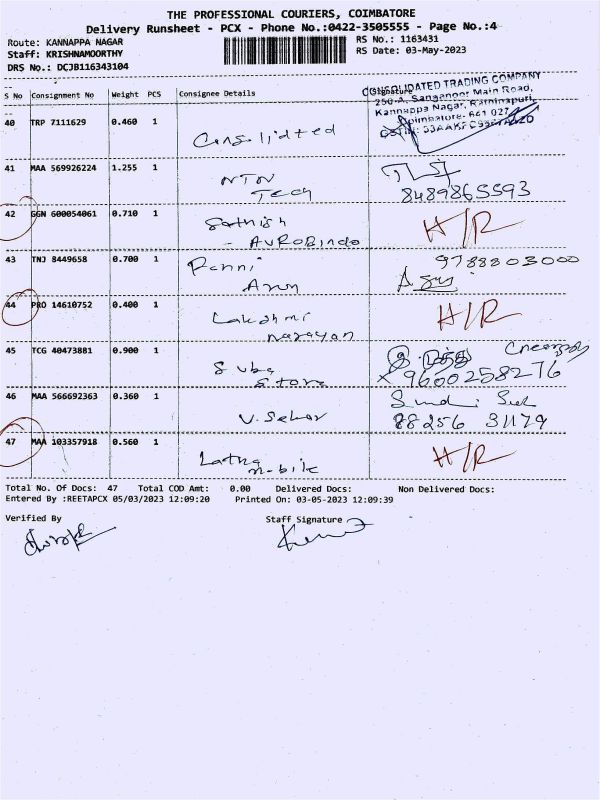 THE PROFESSIONAL COURIERS, COIMBATORE
Delivery Runsheet - PCX - Phone No.:0422-3505555 - Page No.:4
Route: KANNAPPA NAGAR RS No.: 1163431
Staff: KRISHNAMOORTHY RS Date: 03-May-2023
DRS No.: DCJB116343104
S No Consignment No Weight PCS Consignee Details Signature
CONSOLIDATED TRADING COMPANY
250-A, Sanganoor Main Road,
Kannappa Nagar, Rathinapuri,
Coimbatore- 641 027
40 TRP 7111629 0.460 1 Consolidted
41 MAA 569926224 1.255 1 NTN
Tech 8489865593
42 GGN 600054061 0.710 1 Sathish H/R
- AUROBINDO
43 TNJ 8449658 0.700 1 Ponni 9788803000
Arun
44 PRO 14610752 0.400 1 Lakshmi H/R
Narayan
45 TCG 40473881 0.900 1 Suba
Store 9600258276
46 MAA 566692363 0.360 1 V. Sekar
88256 31179
47 MAA 103357918 0.560 1 Latha H/R
Mobile
Total No. Of Docs: 47 Total COD Amt: 0.00 Delivered Docs: Non Delivered Docs:
Entered By :REETAPCX 05/03/2023 12:09:20 Printed On: 03-05-2023 12:09:39
Verified By Staff Signature